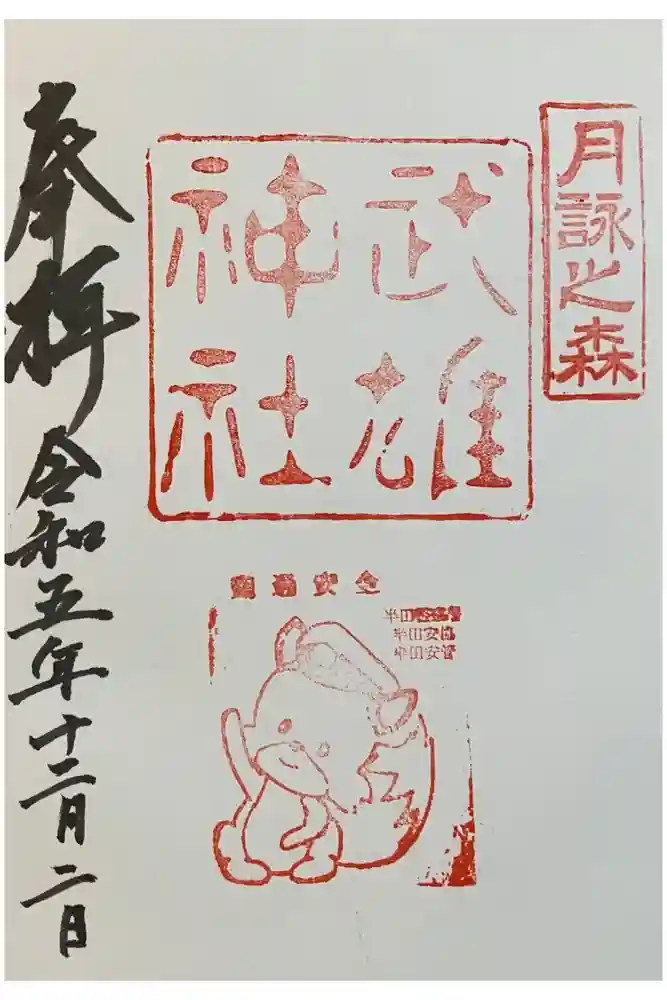 月詠之森
武雄
神社
交通安全
半田安協
半田安管
奉拝
令和五年十二月二日